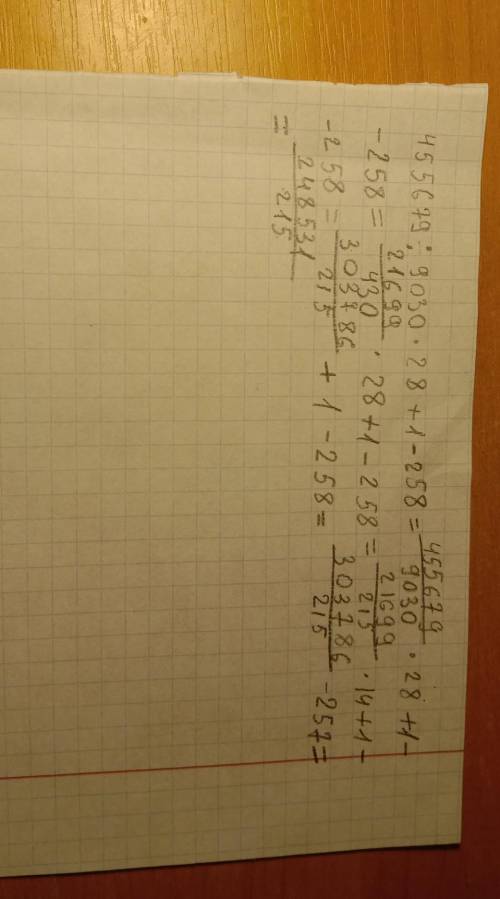 455679:9030·28+1-258=455679/9030·28+1-
-258=21699/430·28+1-258=21699/215·14+1-
-258=303786/215+1-258=303786/215-257=
=248531/215